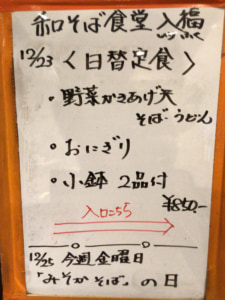 和そば食堂 入福
12/23 〈日替定食〉
・野菜かきあげ天
そば・うどん
・おにぎり
・小鉢 2品付
¥850.-
入口こちら
12/25 今週金曜日
「みそかそば」の日